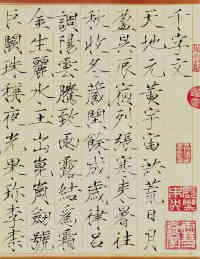 千字文
天地元黃宇宙洪荒日月
盈昃辰宿列張寒來暑往
秋收冬藏閏餘成歲律呂
調陽雲騰致雨露結為霜
金生麗水玉出崑崗劍號
巨闕珠稱夜光果珍李柰